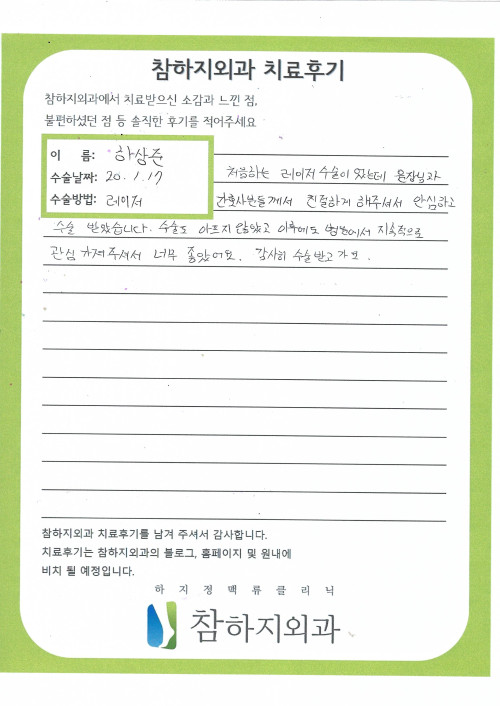 참하지외과 치료후기
참하지외과에서 치료받으신 소감과 느낀 점,
불편하셨던 점 등 솔직한 후기를 적어주세요
이 름: 하상준
수술날짜: 20. 1. 17
수술방법: 레이저
처음하는 레이저 수술이 있는데 원장님과
간호사분들께서 친절하게 해주셔서 안심하고
수술 받았습니다. 수술도 아프지 않았고 이후에도 병원에서 지속적으로
관심 가져주셔서 너무 좋았어요. 감사히 수술받고 가요.
참하지외과 치료후기를 남겨 주셔서 감사합니다.
치료후기는 참하지외과의 블로그, 홈페이지 및 원내에
비치 될 예정입니다.
하지정맥류클리닉
참하지외과